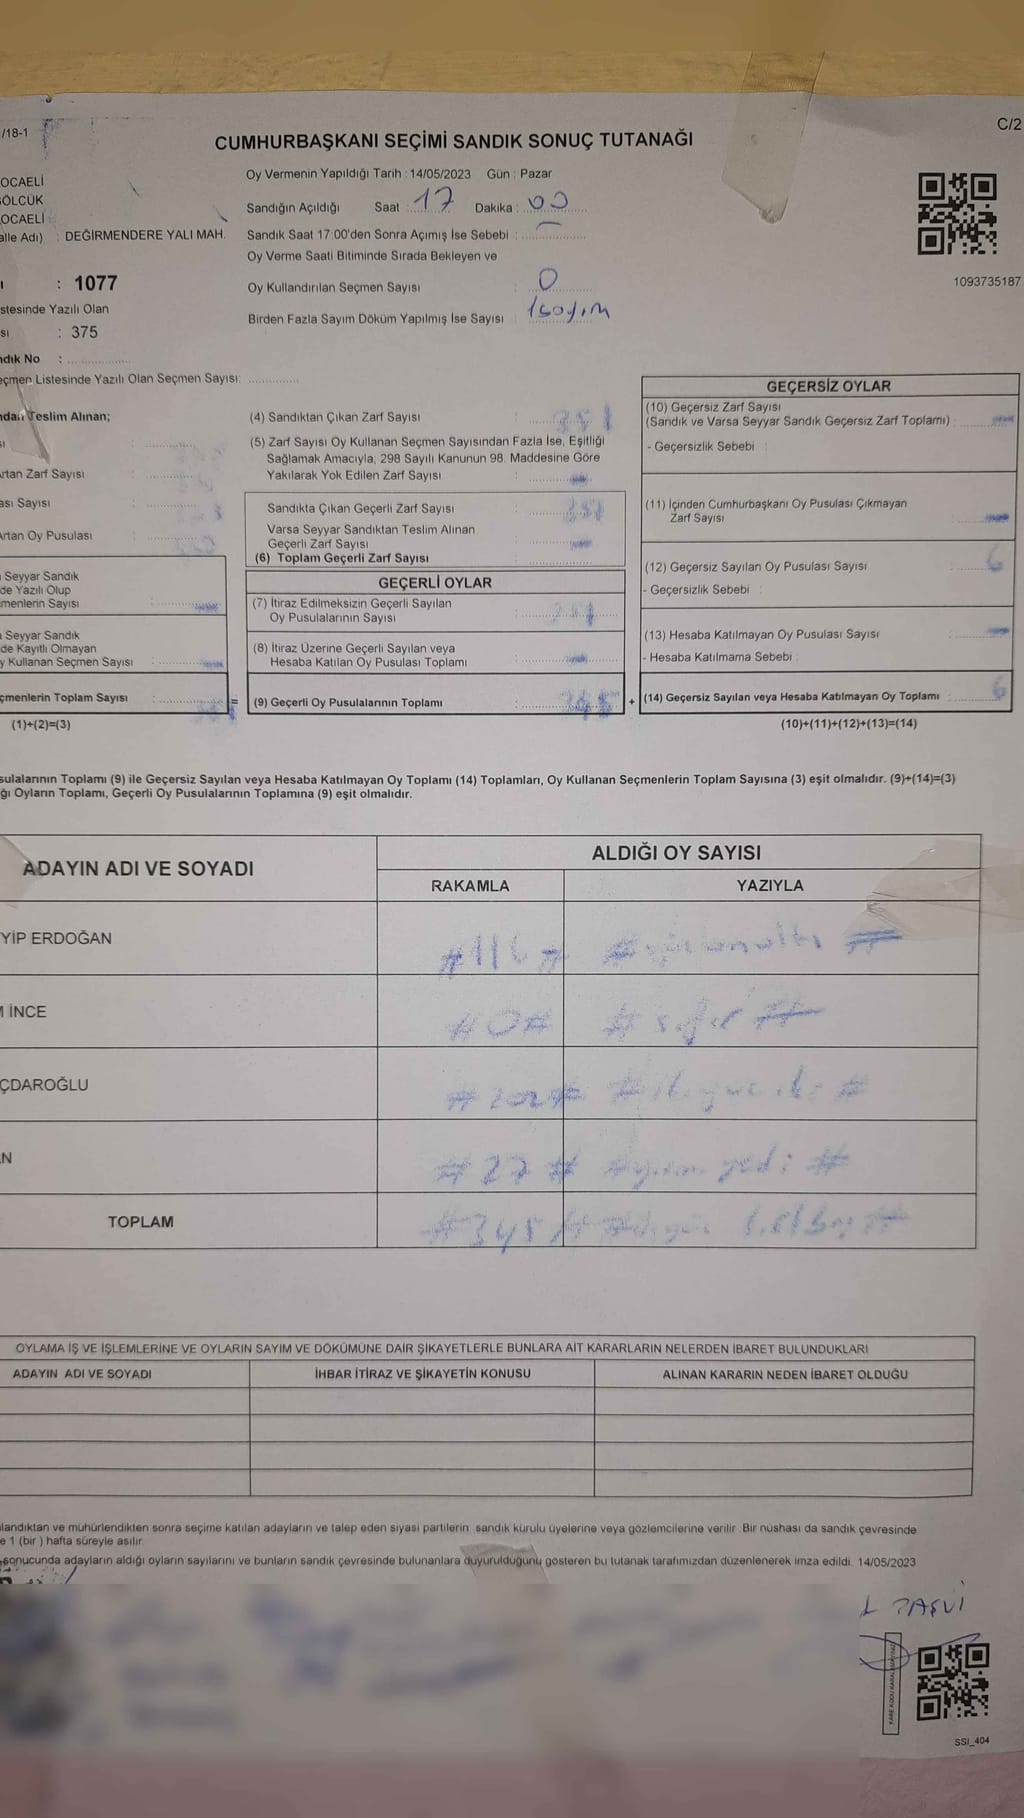 /18-1
C/2
CUMHURBAŞKANI SEÇİMİ SANDIK SONUÇ TUTANAĞI
OCAELİ
GÖLCÜK
OCAELİ
alle Adı) : DEĞİRMENDERE YALI MAH.
: 1077
stesinde Yazılı Olan
sı : 375
ndık No :
eçmen Listesinde Yazılı Olan Seçmen Sayısı:
Oy Vermenin Yapıldığı Tarih : 14/05/2023 Gün : Pazar
Sandığın Açıldığı Saat : 17 Dakika : 00
Sandık Saat 17:00'den Sonra Açımış İse Sebebi :
Oy Verme Saati Bitiminde Sırada Bekleyen ve
Oy Kullandırılan Seçmen Sayısı : 0
Birden Fazla Sayım Döküm Yapılmış İse Sayısı : 1 sayım
1093735187
ndan Teslim Alınan;
sı :
Artan Zarf Sayısı :
ası Sayısı :
Artan Oy Pusulası :
Seyyar Sandık
de Yazılı Olup
menlerin Sayısı :
Seyyar Sandık
de Kayıtlı Olmayan
y Kullanan Seçmen Sayısı :
çmenlerin Toplam Sayısı : =
(1)+(2)=(3)
(4) Sandıktan Çıkan Zarf Sayısı : 351
(5) Zarf Sayısı Oy Kullanan Seçmen Sayısından Fazla İse, Eşitliği
Sağlamak Amacıyla; 298 Sayılı Kanunun 98. Maddesine Göre
Yakılarak Yok Edilen Zarf Sayısı :
Sandıkta Çıkan Geçerli Zarf Sayısı : 351
Varsa Seyyar Sandıktan Teslim Alınan
Geçerli Zarf Sayısı :
(6) Toplam Geçerli Zarf Sayısı :
GEÇERLİ OYLAR
(7) İtiraz Edilmeksizin Geçerli Sayılan
Oy Pusulalarının Sayısı :
(8) İtiraz Üzerine Geçerli Sayılan veya
Hesaba Katılan Oy Pusulası Toplamı :
(9) Geçerli Oy Pusulalarının Toplamı : 345 +
GEÇERSİZ OYLAR
(10) Geçersiz Zarf Sayısı
(Sandık ve Varsa Seyyar Sandık Geçersiz Zarf Toplamı) :
- Geçersizlik Sebebi :
(11) İçinden Cumhurbaşkanı Oy Pusulası Çıkmayan
Zarf Sayısı :
(12) Geçersiz Sayılan Oy Pusulası Sayısı : 6
- Geçersizlik Sebebi :
(13) Hesaba Katılmayan Oy Pusulası Sayısı :
- Hesaba Katılmama Sebebi :
(14) Geçersiz Sayılan veya Hesaba Katılmayan Oy Toplamı : 6
(10)+(11)+(12)+(13)=(14)
sulalarının Toplamı (9) ile Geçersiz Sayılan veya Hesaba Katılmayan Oy Toplamı (14) Toplamları, Oy Kullanan Seçmenlerin Toplam Sayısına (3) eşit olmalıdır. (9)+(14)=(3)
ğı Oyların Toplamı, Geçerli Oy Pusulalarının Toplamına (9) eşit olmalıdır.
ADAYIN ADI VE SOYADI
ALDIĞI OY SAYISI
RAKAMLA YAZIYLA
YİP ERDOĞAN #116# # yüzonaltı #
M İNCE #0# # sıfır #
ÇDAROĞLU #202# # ikiyüziki #
AN #27# # yirmi yedi #
TOPLAM #345#
OYLAMA İŞ VE İŞLEMLERİNE VE OYLARIN SAYIM VE DÖKÜMÜNE DAİR ŞİKAYETLERLE BUNLARA AİT KARARLARIN NELERDEN İBARET BULUNDUKLARI
ADAYIN ADI VE SOYADI İHBAR İTİRAZ VE ŞİKAYETİN KONUSU ALINAN KARARIN NEDEN İBARET OLDUĞU
landıktan ve mühürlendikten sonra seçime katılan adayların ve talep eden siyasi partilerin sandık kurulu üyelerine veya gözlemcilerine verilir. Bir nüshası da sandık çevresinde
e 1 (bir ) hafta süreyle asılır.
sonucunda adayların aldığı oyların sayılarını ve bunların sandık çevresinde bulunanlara duyurulduğunu gösteren bu tutanak tarafımızdan düzenlenerek imza edildi. 14/05/2023
SSI_404